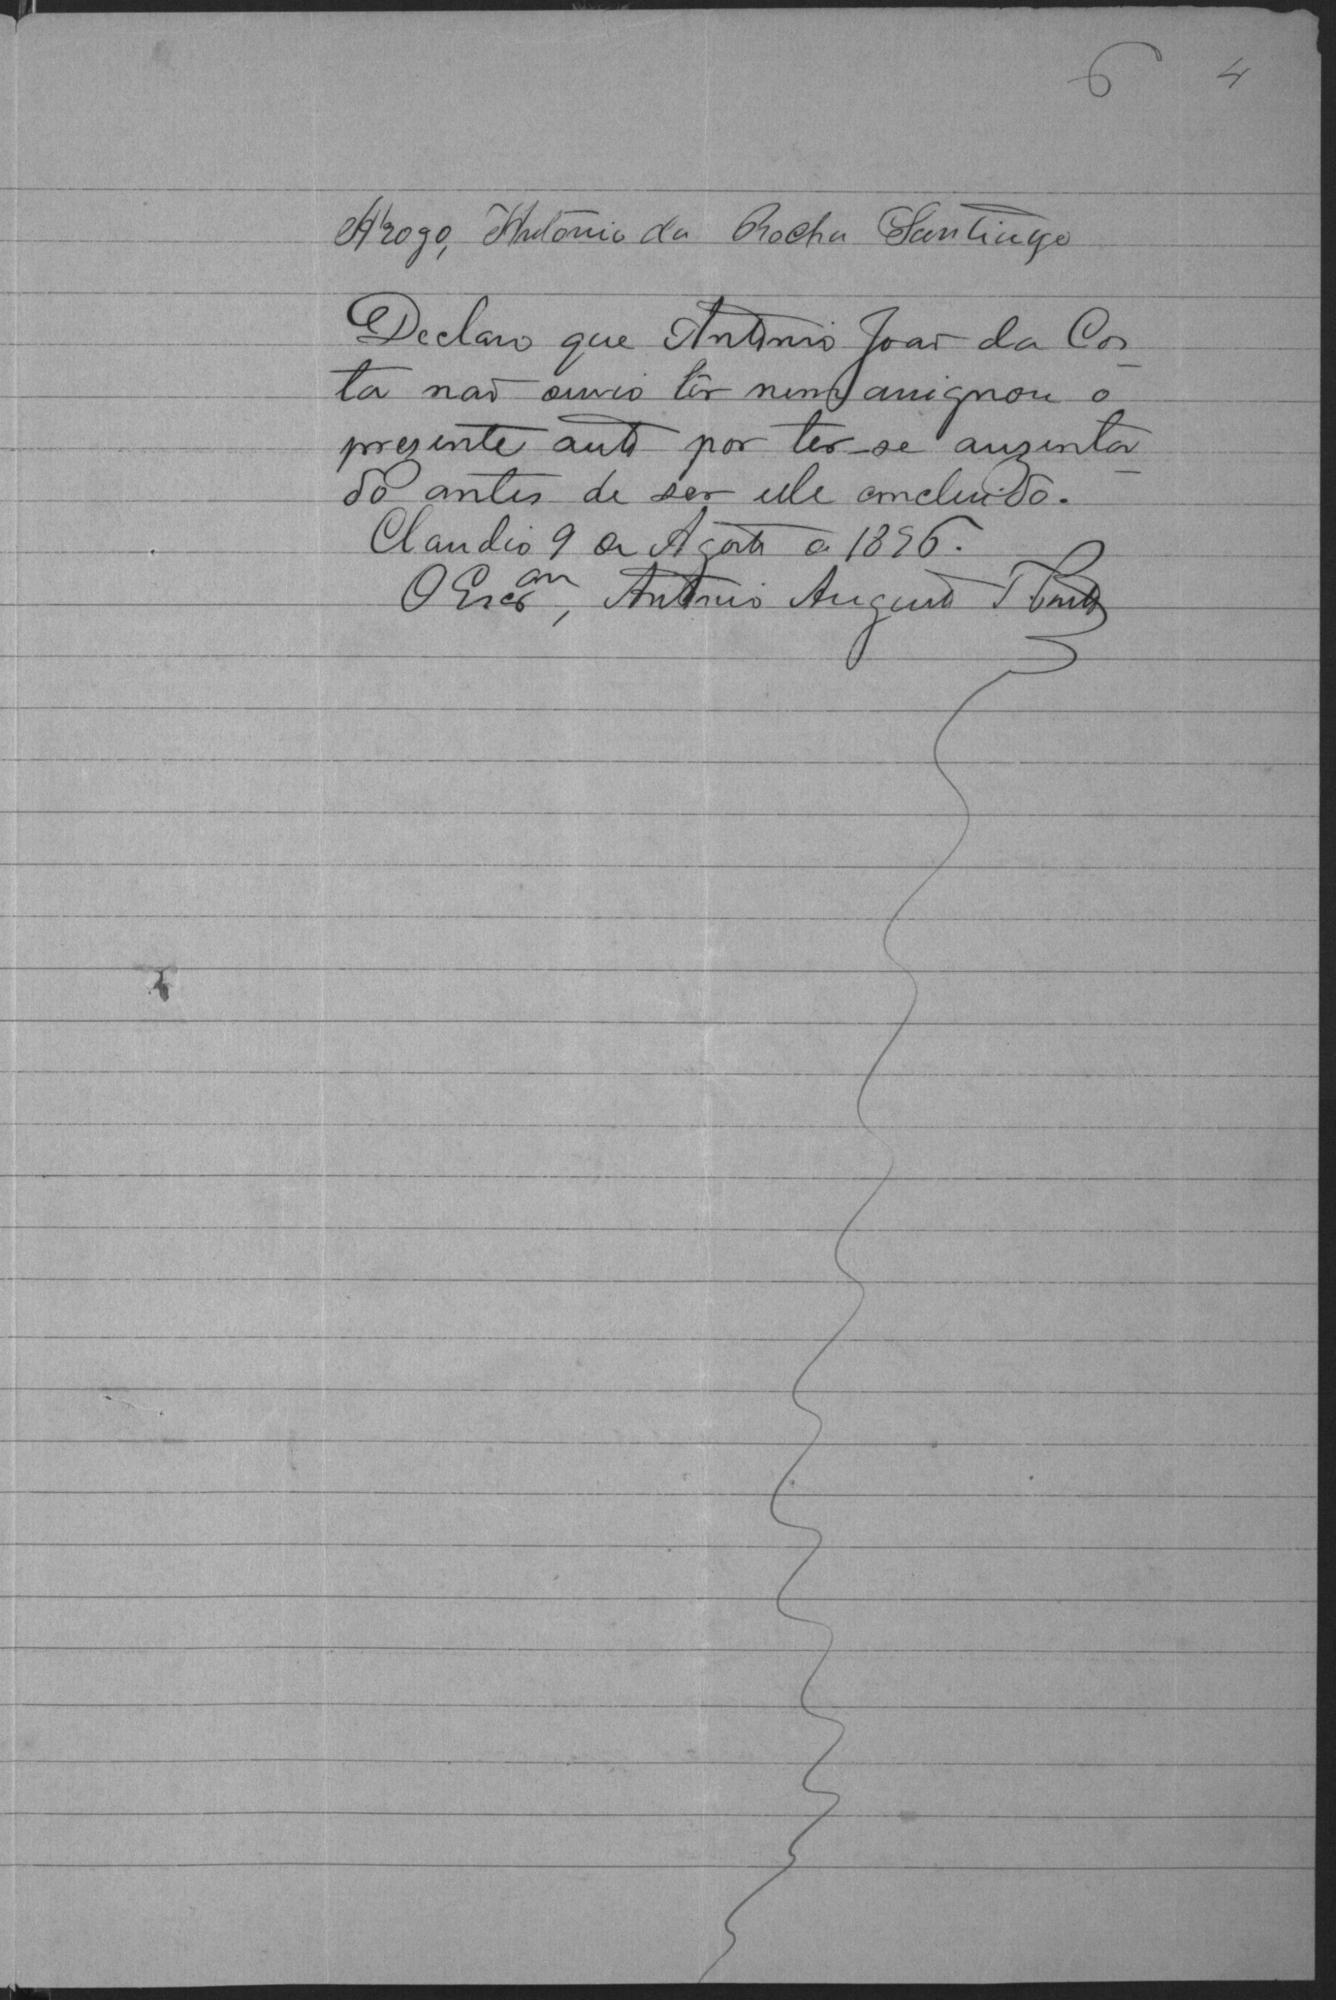 6 4
A rogo, Antonio da Rocha Santiago
Declaro que Antonio João da Cos
ta não ouvio lêr nem assignou o
presente auto por ter-se auzenta
do antes de ser elle concluido.
Claudio 9 de Agosto de 1896.
O Escr.am, Antonio Augusto